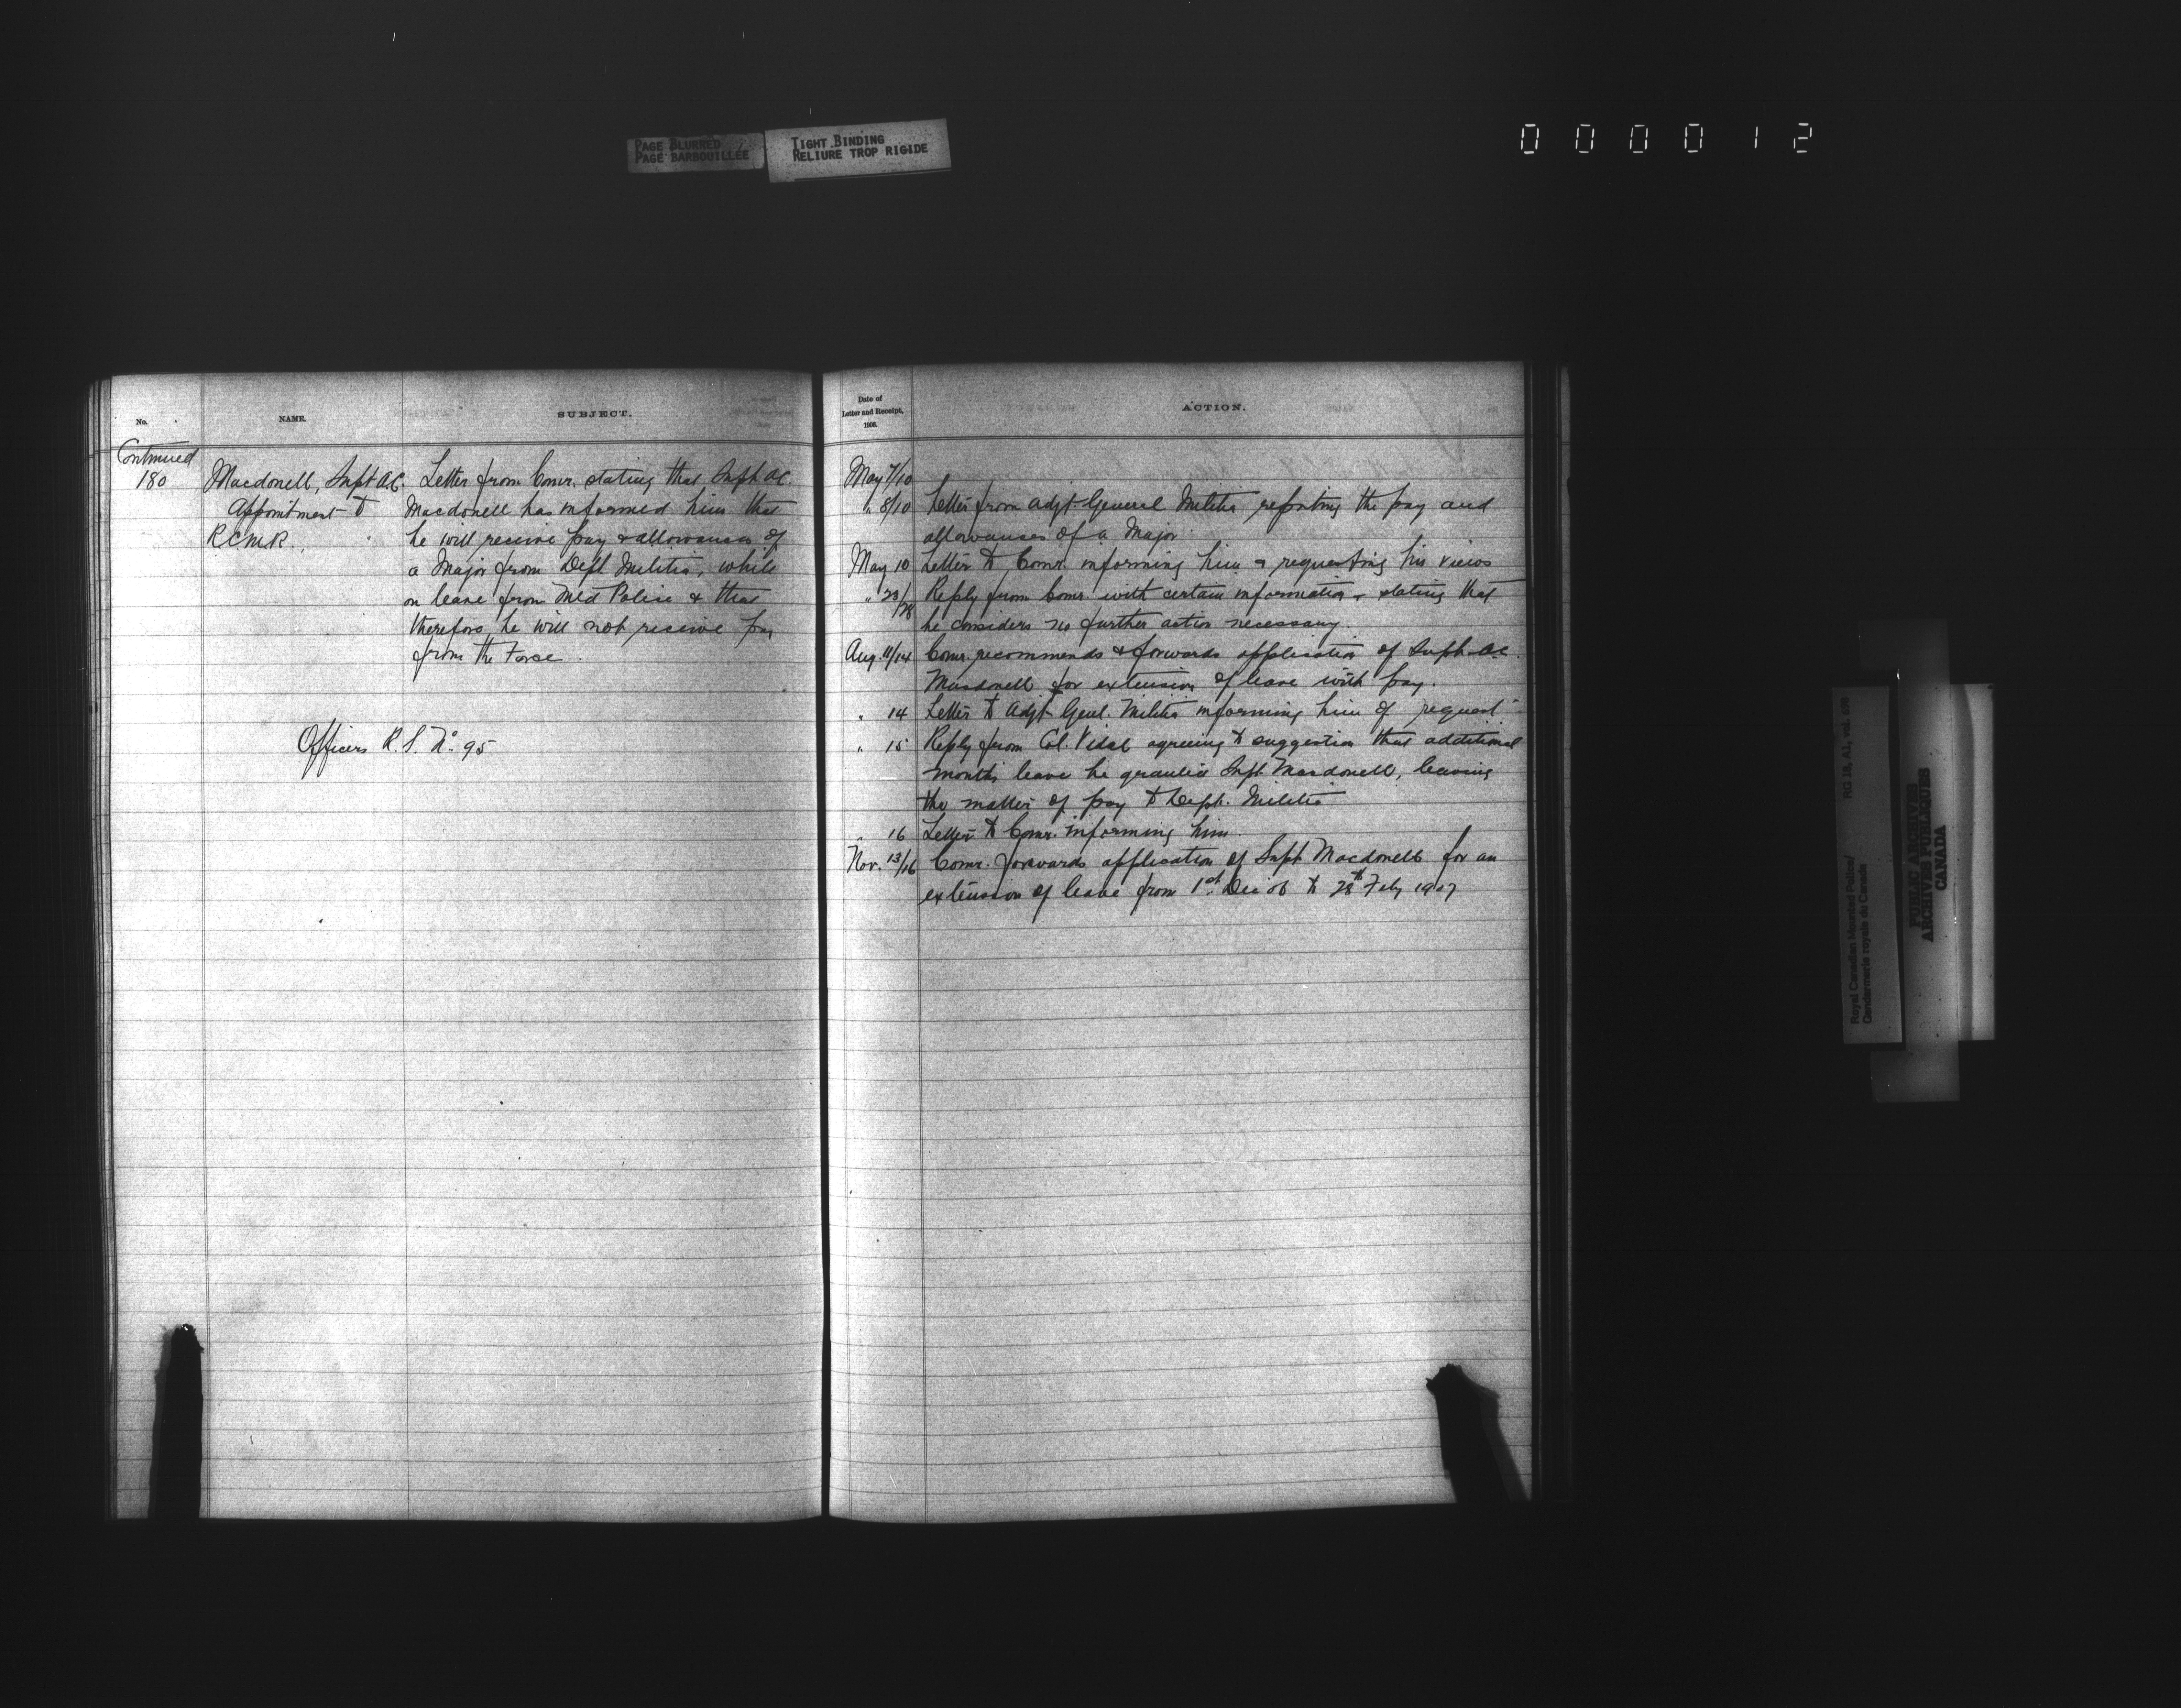 PAGE BLURRED
PAGE BARBOUILLÉE
TIGHT BINDING
RELIURE TROP RIGIDE
000012
No.
NAME.
SUBJECT.
Continued
180
Macdonell, Supt A.C.
Appointment to
R.C.M.R.
Letter from Comr. stating that Supt A.C.
Macdonell has informed him that
he will receive pay & allowances of
a Major from Dept Militia, while
on leave from Md Police & that
therefore he will not receive pay
from the Force.
Officers R.S. No 95
Date of
Letter and Receipt,
1906.
ACTION.
May 7/10
" 8/10 Letter from Adjt General Militia, reporting the pay and
allowances of a Major
May 10 Letter to Comr. informing him & requesting his views
" 23/28 Reply from Comr. with certain information & stating that
he considers no further action necessary.
Aug. 11/14 Comr. recommends & forwards application of Supt A.C.
Macdonell for extension of leave with pay.
" 14 Letter to Adjt Genl. Militia informing him of request
" 15 Reply from Col. Vidal agreeing to suggestion that additional
months leave be granted Supt Macdonell, leaving
the matter of pay to Dept. Militia
" 16 Letter to Comr. informing him.
Nov. 13/16 Comr. forwards application of Supt Macdonell for an
extension of leave from 1st Dec 06 to 28th Feby 1907
Royal Canadian Mounted Police/
Gendarmerie royale du Canada
RG 18, A1, vol.
PUBLIC ARCHIVES
ARCHIVES PUBLIQUES
CANADA